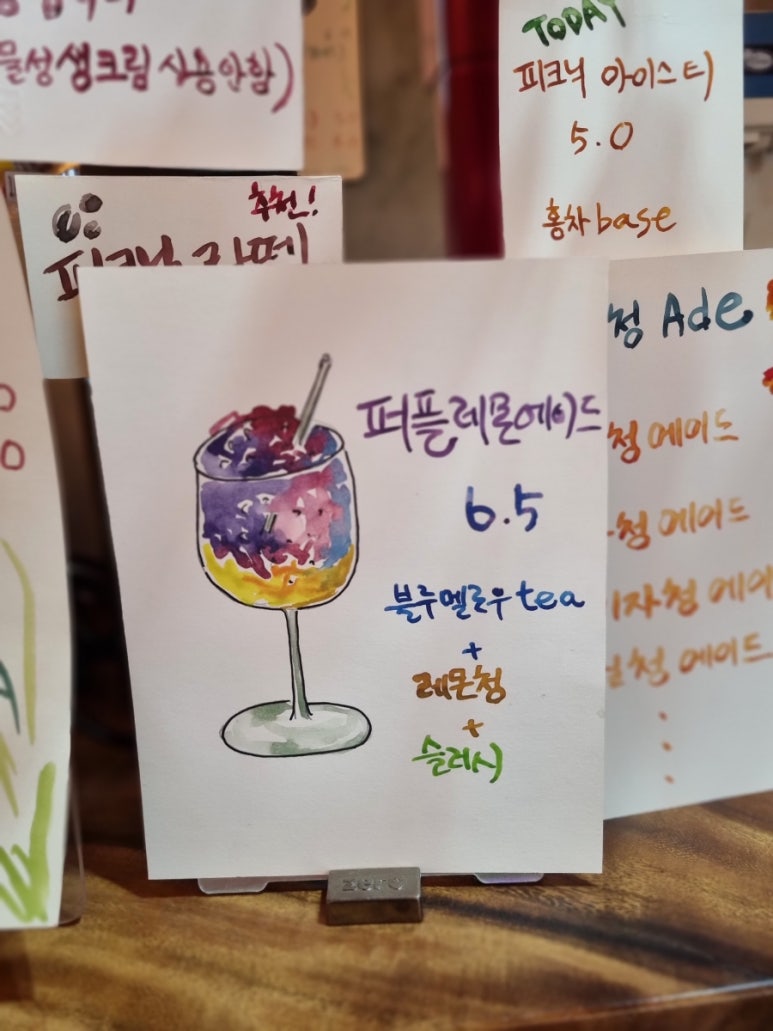 물성생크림 사용안함)
TODAY
피크닉 아이스티
5.0
홍차 base
추천!
피크닉 라떼
퍼플레몬에이드
6.5
블루멜로우 tea
+
레몬청
+
슬러시
청 Ade
청 에이드
청 에이드
자청 에이
청 에이드
zero